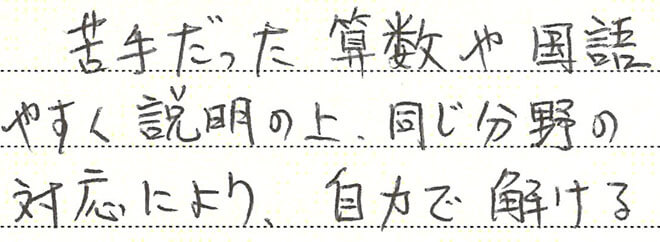 苦手だった算数や国語
やすく説明の上、同じ分野の
対応により、自力で解ける